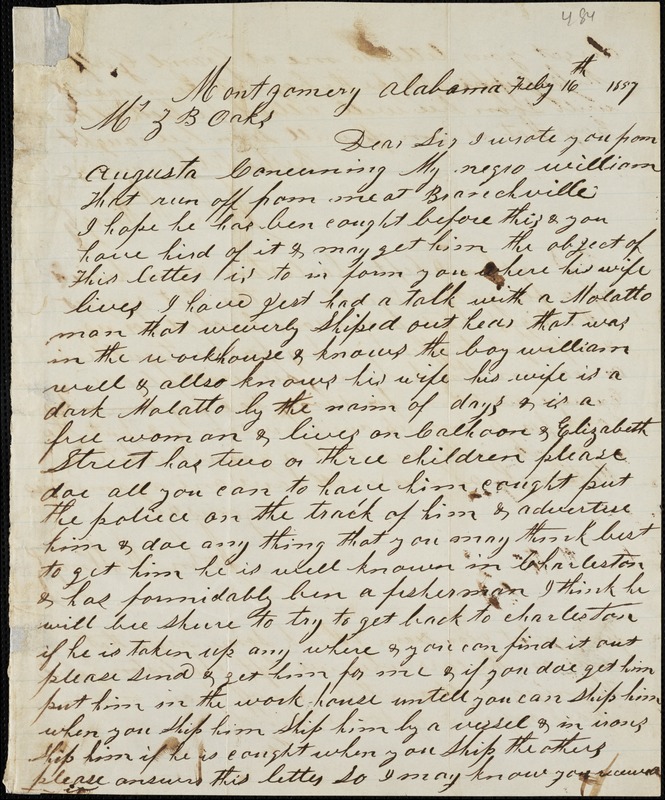 484
Montgomery Alabama Feby 16th 1857
Mr Z B Oakes
Dear Sir I wrote you from
Augusta Concerning My negro william
That run off from me at Branchville
I hope he has ben cought before this & you
have hird of it & may get him the object of
This letter is to in form you where his wife
lives I have gest had a talk with a Molatto
man that weverly Shiped out hear that was
in the workhouse & knows the boy william
well & allso knows his wife his wife is a
dark Molatto by the naim of days & is a
free woman & lives on Calhoon & Elizabeth
Street has two or three children please
doe all you can to have him cought put
the poliece on the track of him & advertise
him & doe any thing that you may think best
to get him he is well known in Charleston
& has formidably ben a fisherman I think he
will bee shure to try to get back to charleston
if he is taken up any where & you can find it out
please send & get him for me & if you doe get him
put him in the work house untell you can ship him
when you ship him ship him by a vessel & in irons
ship him if he is cought when you ship the others
please answer this letter So I may know you